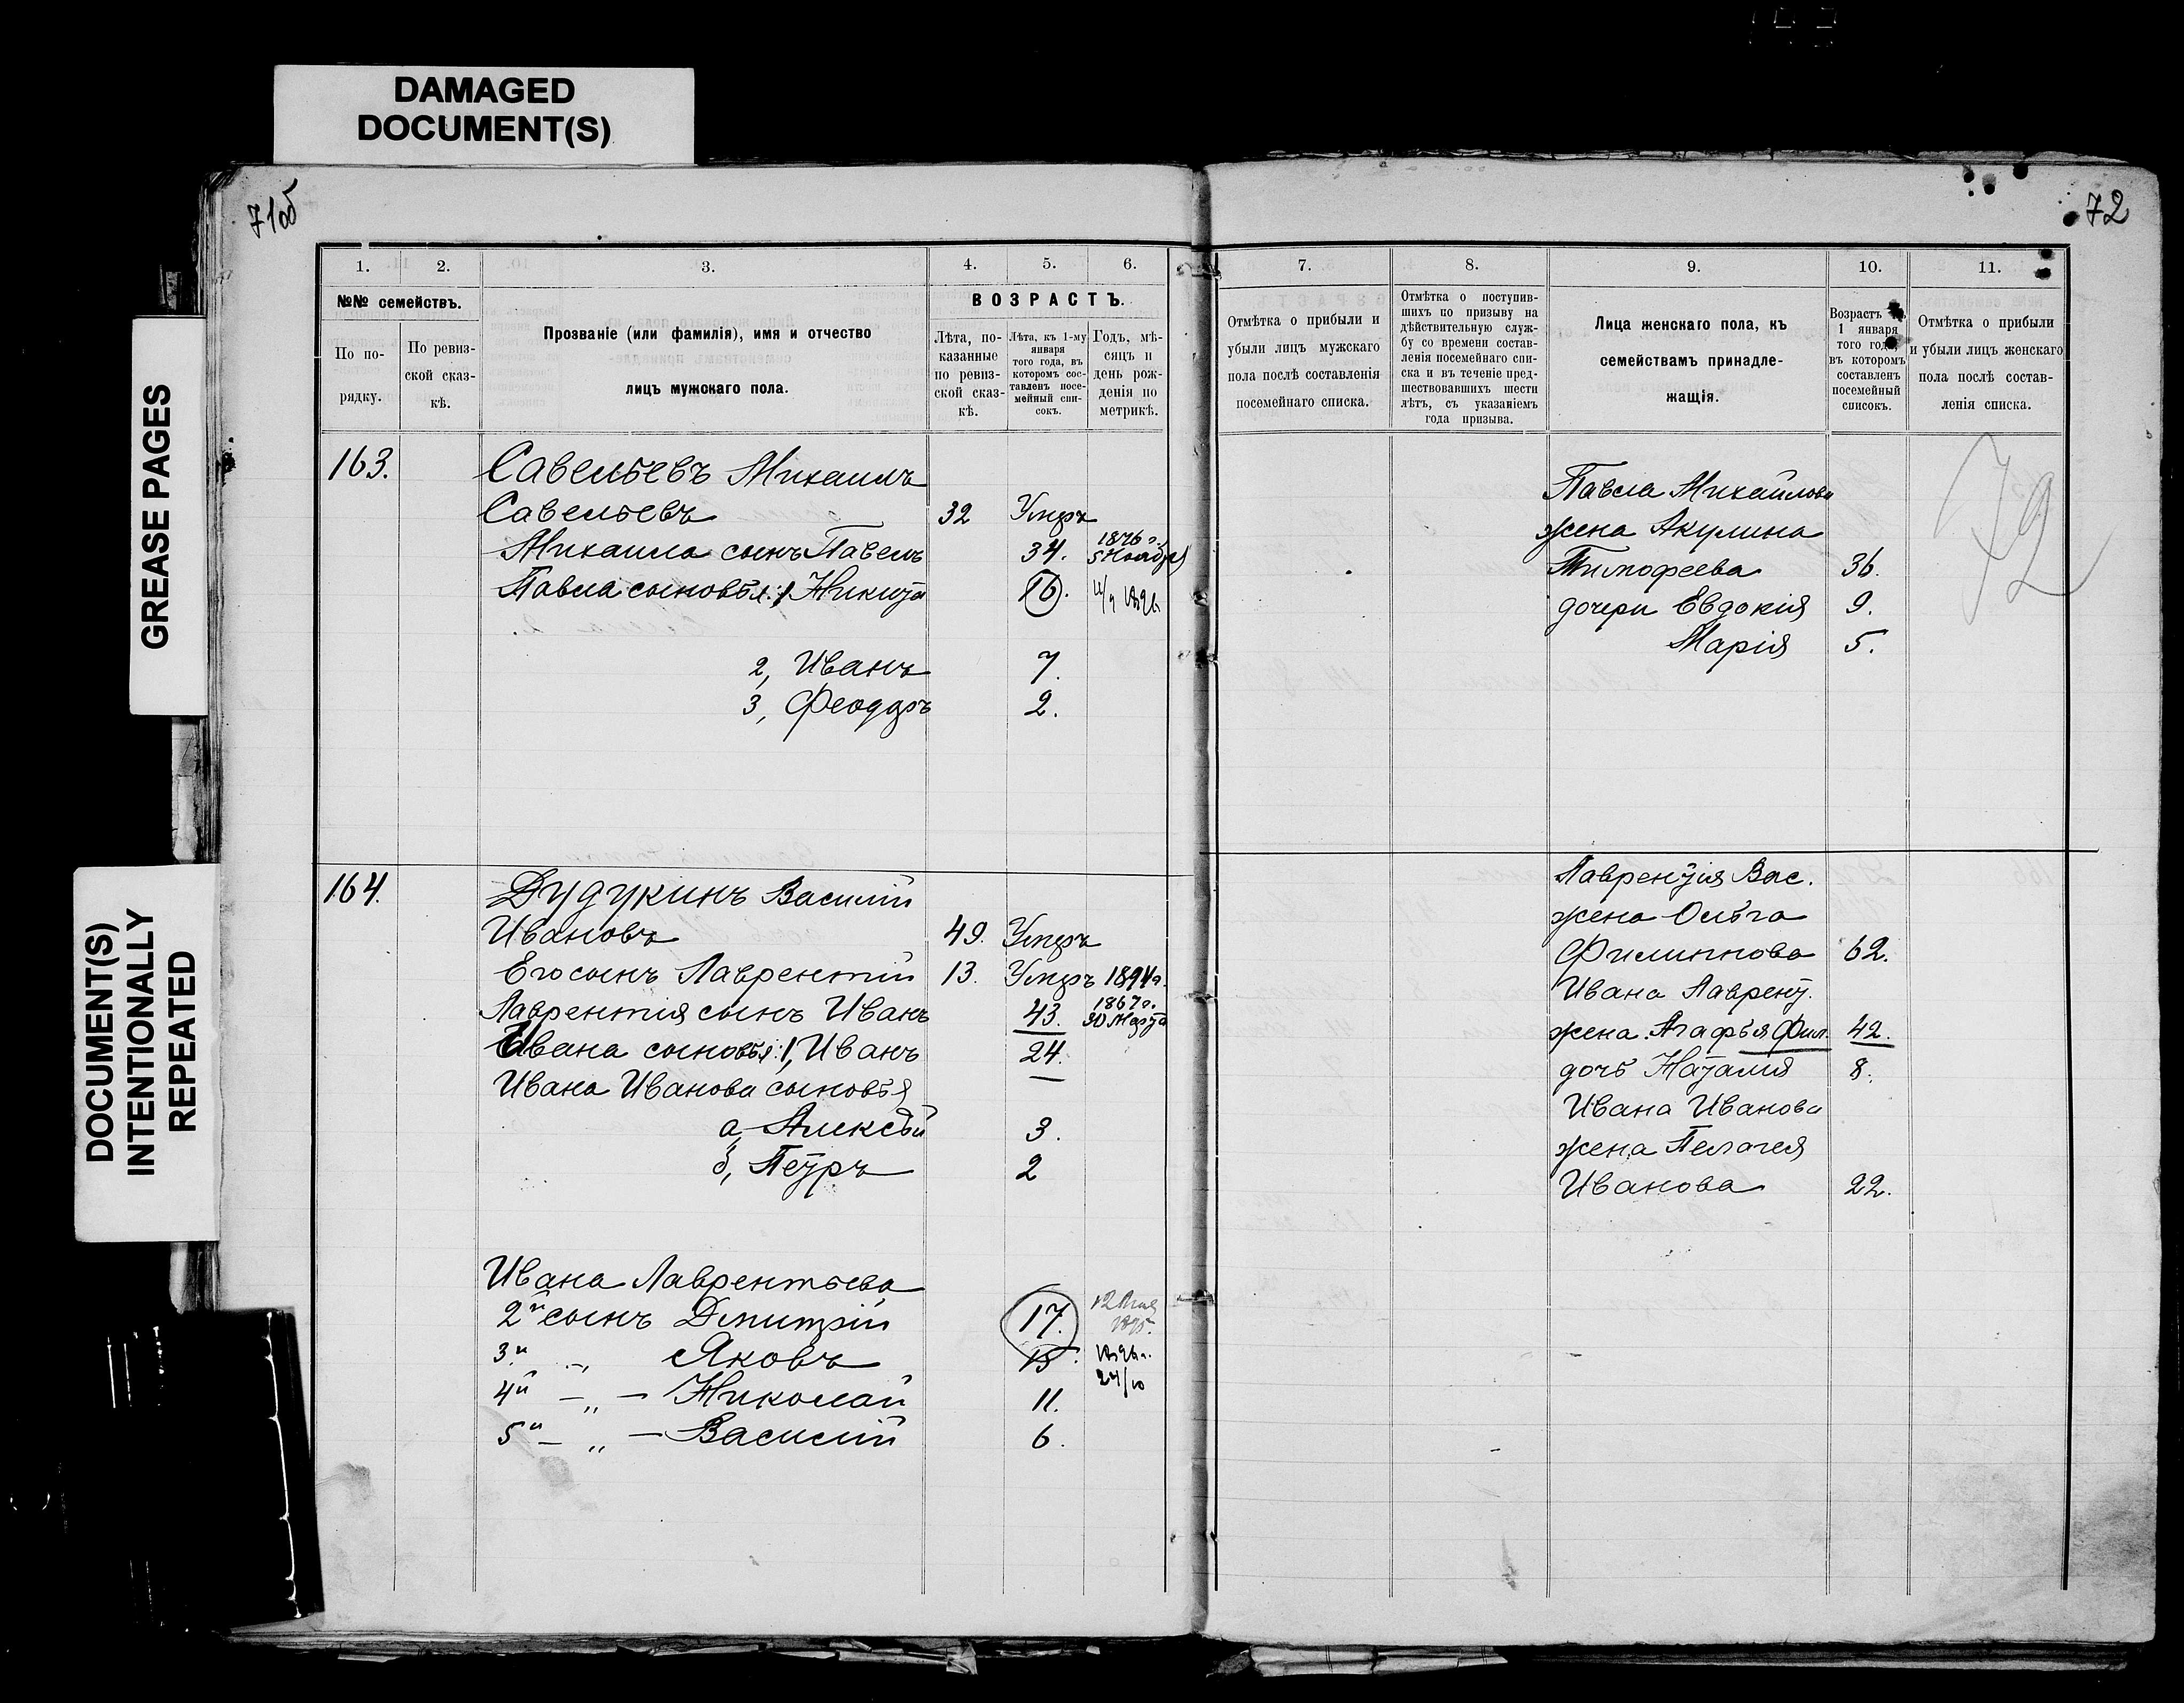 DAMAGED
DOCUMENT(S)
GREASE PAGES
DOCUMENT(S)
INTENTIONALLY
REPEATED
71об
1. 2. 3. 4. 5. 6.
№№ семействъ.
По по-
рядку.
По ревиз-
ской сказ-
кѣ.
Прозваніе (или фамилія), имя и отчество
лицъ мужскаго пола.
ВОЗРАСТЪ.
Лѣта, по-
казанные
по ревиз-
ской сказ-
кѣ.
Лѣта, къ 1-му
января
того года, въ
которомъ сос-
тавленъ посе-
мейный спи-
сокъ.
Годъ, мѣ-
сяцъ и
день рож-
денія по
метрикѣ.
163.
Савельевъ Михаилъ
Савельевъ 32 Умеръ
Михаила сынъ Павелъ 34. 1876 г. 5 Ноября
Павла сыновья: 1, Никита 16.
2, Иванъ 7.
3, Феодоръ 2.
164.
Дудукинъ Василій
Ивановъ 49. Умеръ
Его сынъ Лаврентій 13. Умеръ 1894 г.
Лаврентія сынъ Иванъ 43. 1867 г. 30 Марта
Ивана сыновья: 1, Иванъ 24.
Ивана Иванова сыновья
а, Алексѣй 3.
б, Петръ 2
Ивана Лаврентьева
2й сынъ Дмитрій 17.
3й „ Яковъ 15.
24/10
4й — „ — Николай 11.
5й — „ — Василій 6.
72
7. 8. 9. 10. 11.
Отмѣтка о прибыли и
убыли лицъ мужскаго
пола послѣ составленія
посемейнаго списка.
Отмѣтка о поступив-
шихъ по призыву на
дѣйствительную служ-
бу со времени состав-
ленія посемейнаго спи-
ска и въ теченіе пред-
шествовавшихъ шести
лѣтъ, съ указаніемъ
года призыва.
Лица женскаго пола, къ
семействамъ принадле-
жащія.
Возрастъ
1 января
того года,
въ которомъ
составленъ
посемейный
списокъ.
Отмѣтка о прибыли
и убыли лицъ женскаго
пола послѣ состав-
ленія списка.
72
Павла Михайлова
жена Акулина
Тимофеева 36.
дочери Евдокія 9.
Марія 5.
Лаврентія Вас.
жена Ольга
Филиппова 62.
Ивана Лаврент.
жена Агафья Фил. 42.
дочь Наталія 8.
Ивана Иванова
жена Пелагея
Иванова 22.